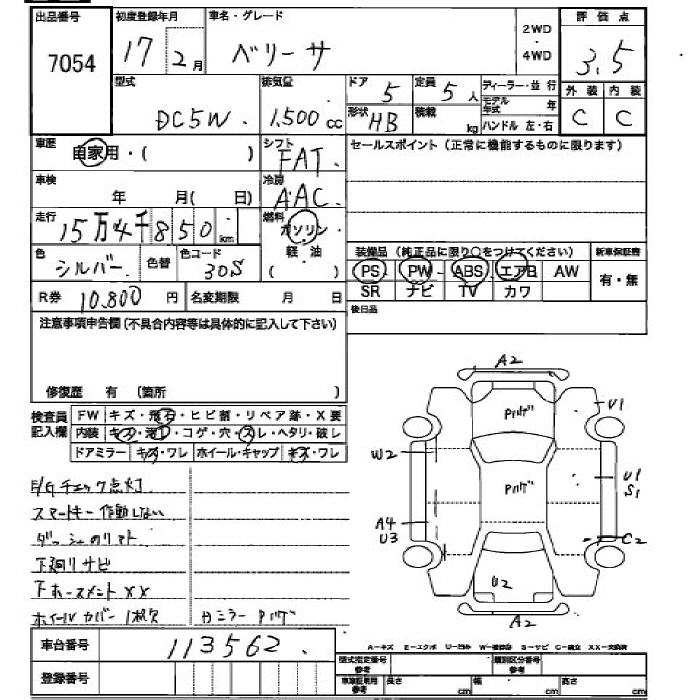 出品番号 7054
初度登録年月 17 2月
車名・グレード ベリーサ
2WD・4WD
評価点 3.5
型式 DC5W.
排気量 1.500 cc
ドア 5
定員 5人
ディーラー・並行
形状 HB
積載 kg
モデル年式 年
ハンドル 左・右
外装 C
内装 C
車歴 自家用・( )
シフト FAT.
セールスポイント(正常に機能するものに限ります)
車検 年 月(日)
冷房 AAC
走行 15万4千850 km
燃料 ガソリン・軽油 ( )
色 シルバー. 色替
色コード 30S
装備品(純正品に限り○をつけてください)
新車保証書
PS PW ABS エアB AW
有・無
SR ナビ TV カワ
R券 10.800円
名変期限 月 日
後日品
注意事項申告欄(不具合内容等は具体的に記入して下さい)
修復歴 有 (箇所 )
検査員記入欄
FW キズ・飛石・ヒビ割・リペア跡・X要
内装 キズ・汚レ・コゲ・穴・スレ・ヘタリ・破レ
ドアミラー キズ・ワレ ホイール・キャップ キズ・ワレ
E/Gチェック点灯
スマートキー作動しない
ダッシュのリマト
下廻りサビ
ホイールカバー1枚欠
カミラーPハゲ
A2
Pハゲ
U1
W2
Pハゲ
U1
S1
A4
U3
C2
U2
A2
車台番号 113562.
A-キズ E-エクボ U-凹み W-補修跡 S-サビ C-腐食 XX-交換済
登録番号
型式指定番号 参考
類別区分番号 参考
車庫証明用 参考
長さ cm
幅 cm
高さ cm